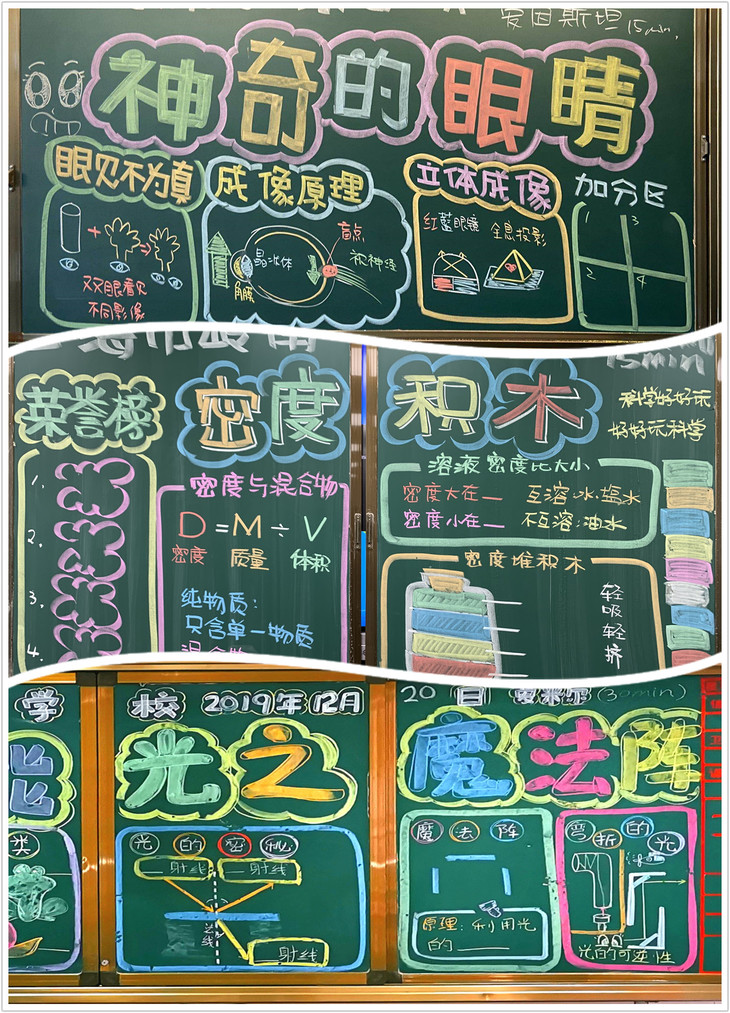 爱因斯坦 15min.
神奇的眼睛
眼见不为真
双眼看见
不同影像
成像原理
晶状体
角膜
盲点
视神经
立体成像
红蓝眼镜 全息投影
加分区
1 3
2 4
荣誉榜
1.
2.
3.
4.
密度
密度与混合物
D = M ÷ V
密度 质量 体积
纯物质:
只含单一物质
混合物
15min
积木
科学好好玩
好好玩科学
溶液密度比大小
密度大在__ 互溶:水.盐水
密度小在__ 不互溶:油水
密度堆积木
轻吸轻挤
学校 2019年12月20日 (30min)
类
光之魔法阵
光的密秘
__射线 __射线
法线
__射线
魔法阵
原理:利用光
的______
弯折的光
光的可逆性